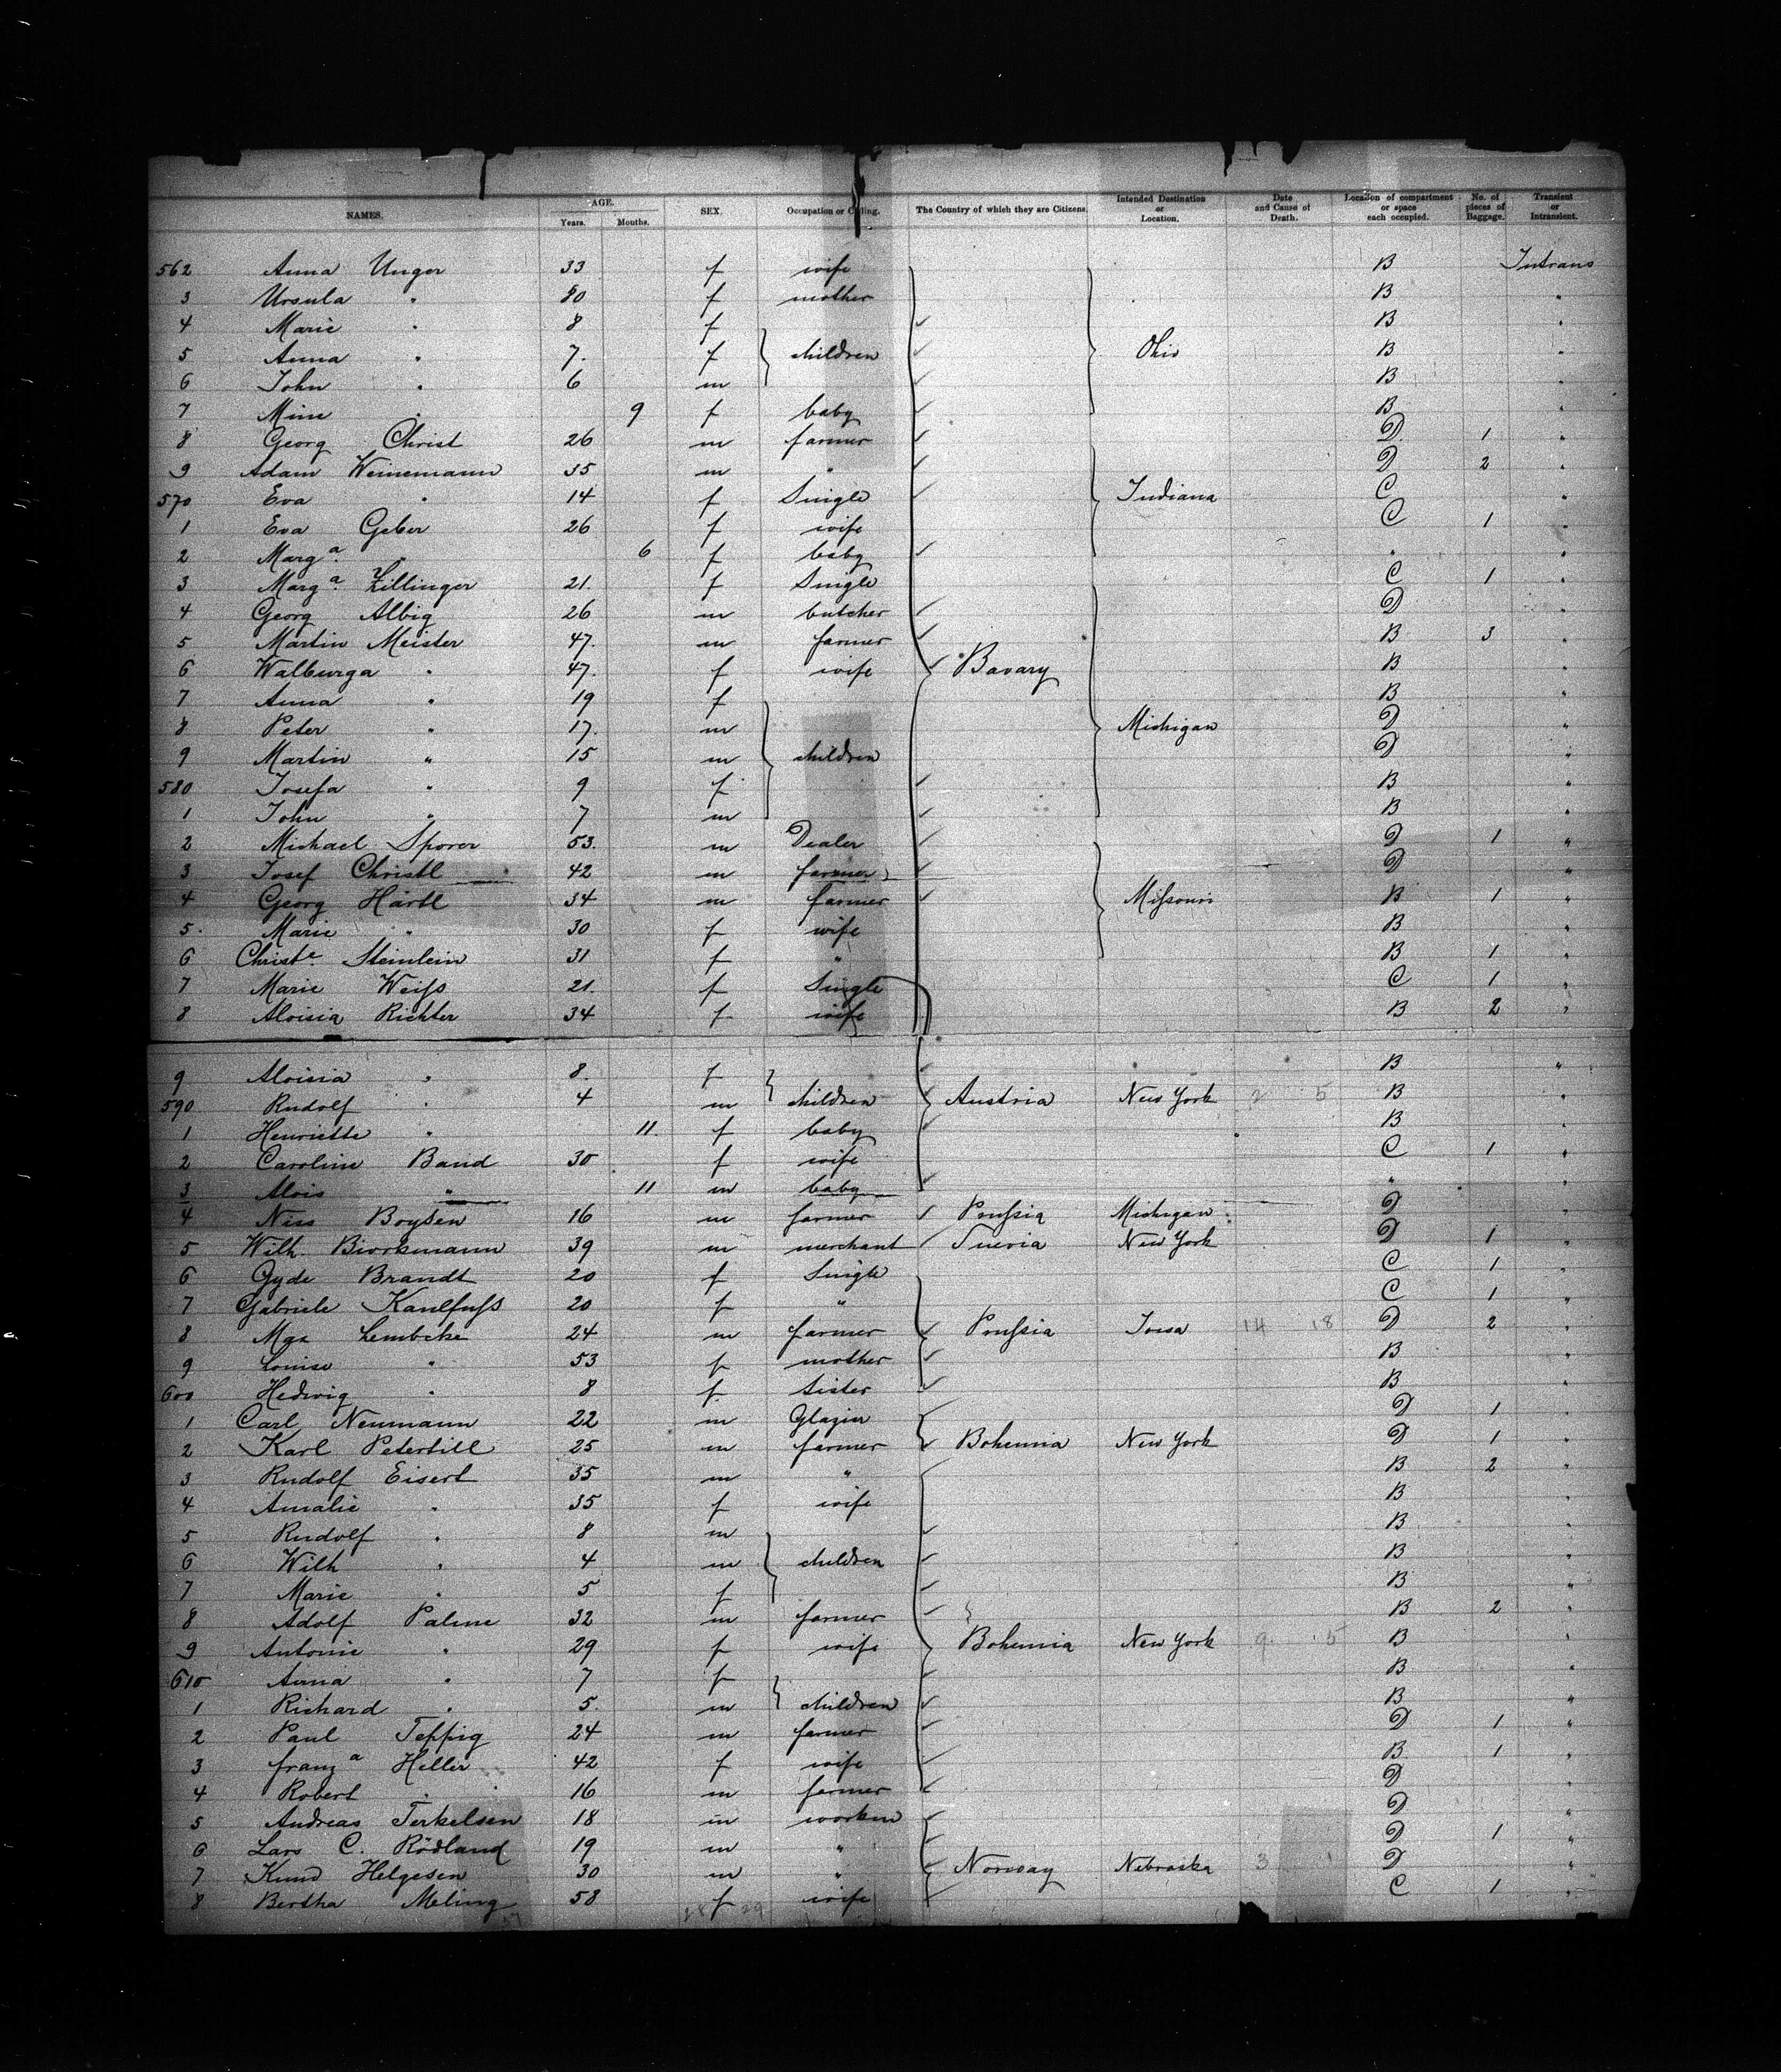 NAMES. AGE. Years. Months. SEX. Occupation or Calling. The Country of which they are Citizens. Intended Destination or Location. Date and Cause of Death. Location of compartment or space each occupied. No. of pieces of Baggage. Transient or Intransient.
562 Anna Unger 33 f wife B Intrans
3 Ursula " 80 f mother B "
4 Marie " 8 f B "
5 Anna " 7. f children Ohio B "
6 John " 6 m B "
7 Mine " 9 f baby B "
8 Georg Christ 26 m farmer D 1 "
9 Adam Weinemann 35 m " D 2 "
570 Eva " 14 f Single Indiana C "
1 Eva Geber 26 f wife C 1 "
2 Marga. " 6 f baby " "
3 Marga. Zillinger 21. f Single C 1 "
4 Georg Albig 26 m butcher D "
5 Martin Meister 47. m farmer B 3 "
6 Walburga " 47. f wife Bavary B "
7 Anna " 19 f B "
8 Peter " 17. m Michigan D "
9 Martin " 15 m children D "
580 Josefa " 9 f B "
1 John " 7 m B "
2 Michael Sporer 53. m Dealer D 1 "
3 Josef Christl 42 m farmer D "
4 Georg Härtl 34 m farmer Missouri B 1 "
5. Marie " 30 f wife B "
6 Christe. Steinlein 31 f " B 1 "
7 Marie Weiss 21. f Single C 1 "
8 Aloisia Richter 34 f wife B 2 "
9 Aloisia " 8. f B "
590 Rudolf " 4 m children Austria New York 2 5 B "
1 Henriette " 11. f baby B "
2 Caroline Band 30 f wife C 1 "
3 Alois " 11 m baby " "
4 Niss Boysen 16 m farmer Prussia Michigan D "
5 Wilh. 39 m merchant New York D 1 "
6 Gyde Brandt 20 f Single C 1 "
7 Gabriele Kaulfuss 20 f " C 1 "
8 Lembcke 24 m farmer Prussia Iowa 14 18 D 2 "
9 Louise " 53 f mother B "
600 Hedwig " 8 f. Sister B "
1 Carl Neumann 22 m Glazier D 1 "
2 Karl Petertill 25 m farmer Bohemia New York D 1 "
3 Rudolf Eisert 35 m " B 2 "
4 Amalie " 35 f wife B "
5 Rudolf " 8 m B "
6 Wilh " 4 m children B "
7 Marie " 5 f B "
8 Adolf Palme 32 m farmer B 2 "
9 Antonie " 29 f wife Bohemia New York 9 5 B "
610 Anna " 7 f B "
1 Richard " 5. m children B "
2 Paul Teppig 24 m farmer D 1 "
3 franza Heller 42 f wife B 1 "
4 Robert " 16 m farmer D "
5 Andreas Terkelsen 18 m D "
6 Lars C. Rödland 19 m " D 1 "
7 Knud Helgesen 30 m " Norway Nebraska 3 1 D "
8 Bertha Meling 58 f wife C 1 "